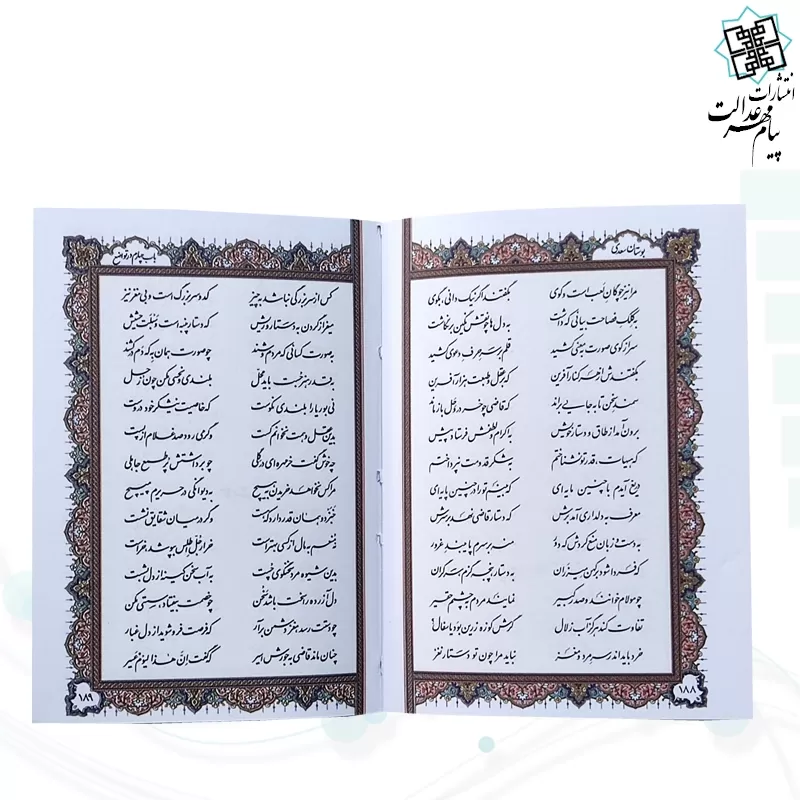 انتشارات
پیام مهر عدالت
بوستان سعدی
مرا نیز چوگان لعب است و گوی بگفتند اگر نیک دانی، بگوی
به کلک فصاحت بیانی که داشت به دل‌ها چو نقش نگین برنگاشت
سر از کوی صورت به معنی کشید قلم بر سر حرف دعوی کشید
بگفتندش از هر کنار آفرین که بر عقل و طبعت هزار آفرین
سمند سخن تا به جایی براند که قاضی چو خر در وحل بازماند
برون آمد از طاق و دستار خویش به اکرام و لطفش فرستاد پیش
که هیهات، قدر تو نشناختم به شکر قدومت نپرداختم
دریغ آیدم با چنین مایه‌ای که بینم تو را در چنین پایه‌ای
معرف به دلداری آمد برش که دستار قاضی نهد بر سرش
به دست و زبان منع کردش که دور منه بر سرم پایبند غرور
که فردا شود بر کهن میزران به دستار پنجه گزم سرگران
چو مولام خوانند و صدر کبیر نمایند مردم به چشمم حقیر
تفاوت کند هرگز آب زلال گرش کوزه زرین بود یا سفال؟
خرد باید اندر سر مرد و مغز نباید مرا چون تو دستار نغز
۱۸۸
باب چهارم در تواضع
کس از سر بزرگی نباشد به چیز کدو سر بزرگ است و بی مغز نیز
میفراز گردن به دستار و ریش که دستار پنبه است و سبلت حشیش
به صورت کسانی که مردم وشند چو صورت همان به که دم درکشند
به قدر هنر جست باید محل بلندی و نحسی مکن چون زحل
نی بوریا را بلندی نکوست که خاصیت نیشکر خود در اوست
بدین عقل و همت نخوانم کست وگر می رود صد غلام از پست
چه خوش گفت خرمهره ای در گلی چو برداشتش پر طمع جاهلی
مرا کس نخواهد خریدن به هیچ به دیوانگی در حریرم مپیچ
خبزدو همان قدر دارد که هست وگر در میان شقایق نشست
نه منعم به مال از کسی بهتر است خر ار جل اطلس بپوشد خر است
بدین شیوه مرد سخنگوی چست به آب سخن کینه از دل بشست
دل آزرده را سخت باشد سخن چو خصمت بیفتاد سستی مکن
چو دستت رسد مغز دشمن برآر که فرصت فرو شوید از دل غبار
چنان ماند قاضی به جورش اسیر که گفت اِنَّ هذا لیومٌ عسیر
۱۸۹